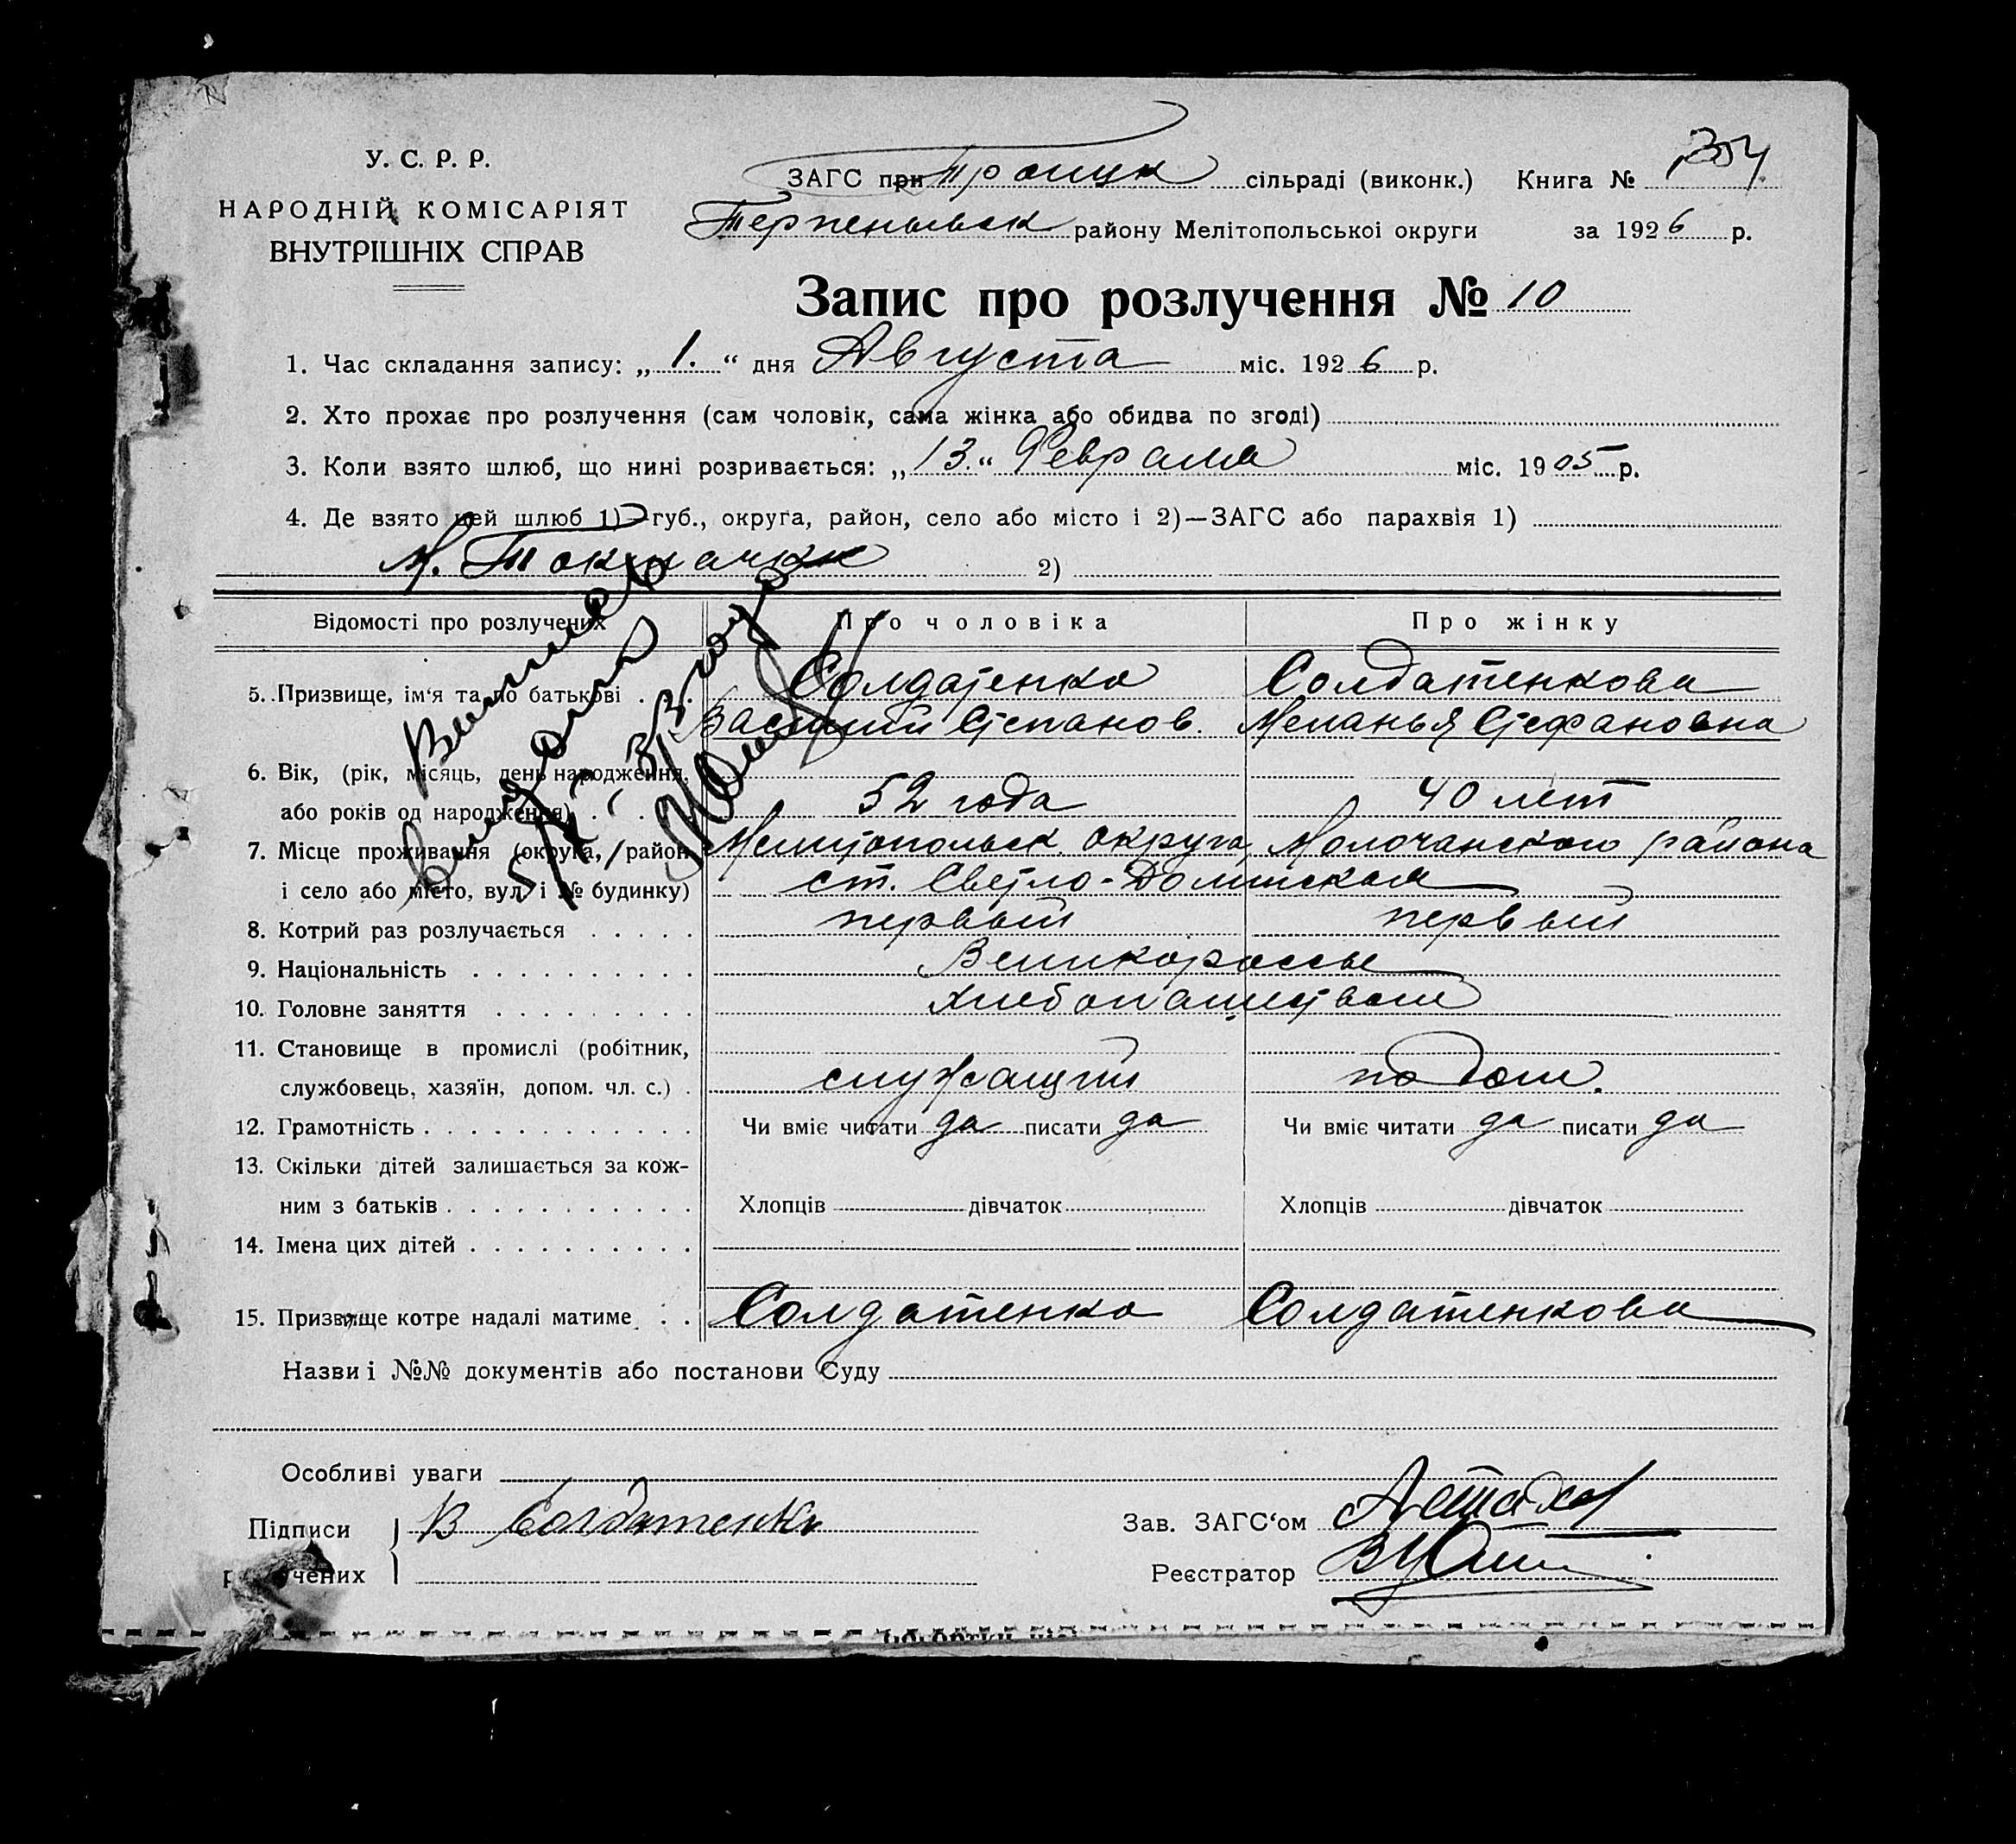 304
У. С. Р. Р.
НАРОДНІЙ КОМІСАРІЯТ
ВНУТРІШНІХ СПРАВ
ЗАГС при Троицк сільраді (виконк.) Книга №
Терпеньевск району Мелітопольської округи за 1926 р.
Запис про розлучення № 10
1. Час складання запису: „1.“ дня Августа міс. 1926 р.
2. Хто прохає про розлучення (сам чоловік, сама жінка або обидва по згоді)
3. Коли взято шлюб, що нині розривається: „13.“ Февраля міс. 1905 р.
4. Де взято цей шлюб 1)—губ., округа, район, село або місто і 2)—ЗАГС або парахвія 1)
М. Токмачки 2)
Відомості про розлучених Про чоловіка Про жінку
5. Призвище, ім‘я та по батькові . . . Солдатенко Солдатенкова
Василий Степанов. Меланья Стефановна
6. Вік, (рік, місяць, день народження,
або років од народження) . . . 52 года 40 лет
7. Місце проживання (округа, район Мелитопольск округа, Молочанского района
і село або місто, вул. і № будинку) ст. Светло-Долинская
8. Котрий раз розлучається . . . . . первый первый
9. Національність . . . . . . . . . . Великороссы
10. Головне заняття . . . . . . . . . Хлебопашеством
11. Становище в промислі (робітник,
службовець, хазяїн, допом. чл. с.) . служащий по дом.
12. Грамотність . . . . . . . . . . . . Чи вміє читати да писати да Чи вміє читати да писати да
13. Скільки дітей залишається за кож-
ним з батьків . . . . . . . . . . . Хлопців дівчаток Хлопців дівчаток
14. Імена цих дітей . . . . . . . . . .
15. Призвище котре надалі матиме . . Солдатенко Солдатенкова
Назви і №№ документів або постанови Суду
Особливі уваги
Підписи В Солдатенко Зав. ЗАГС‘ом
розлучених Реєстратор